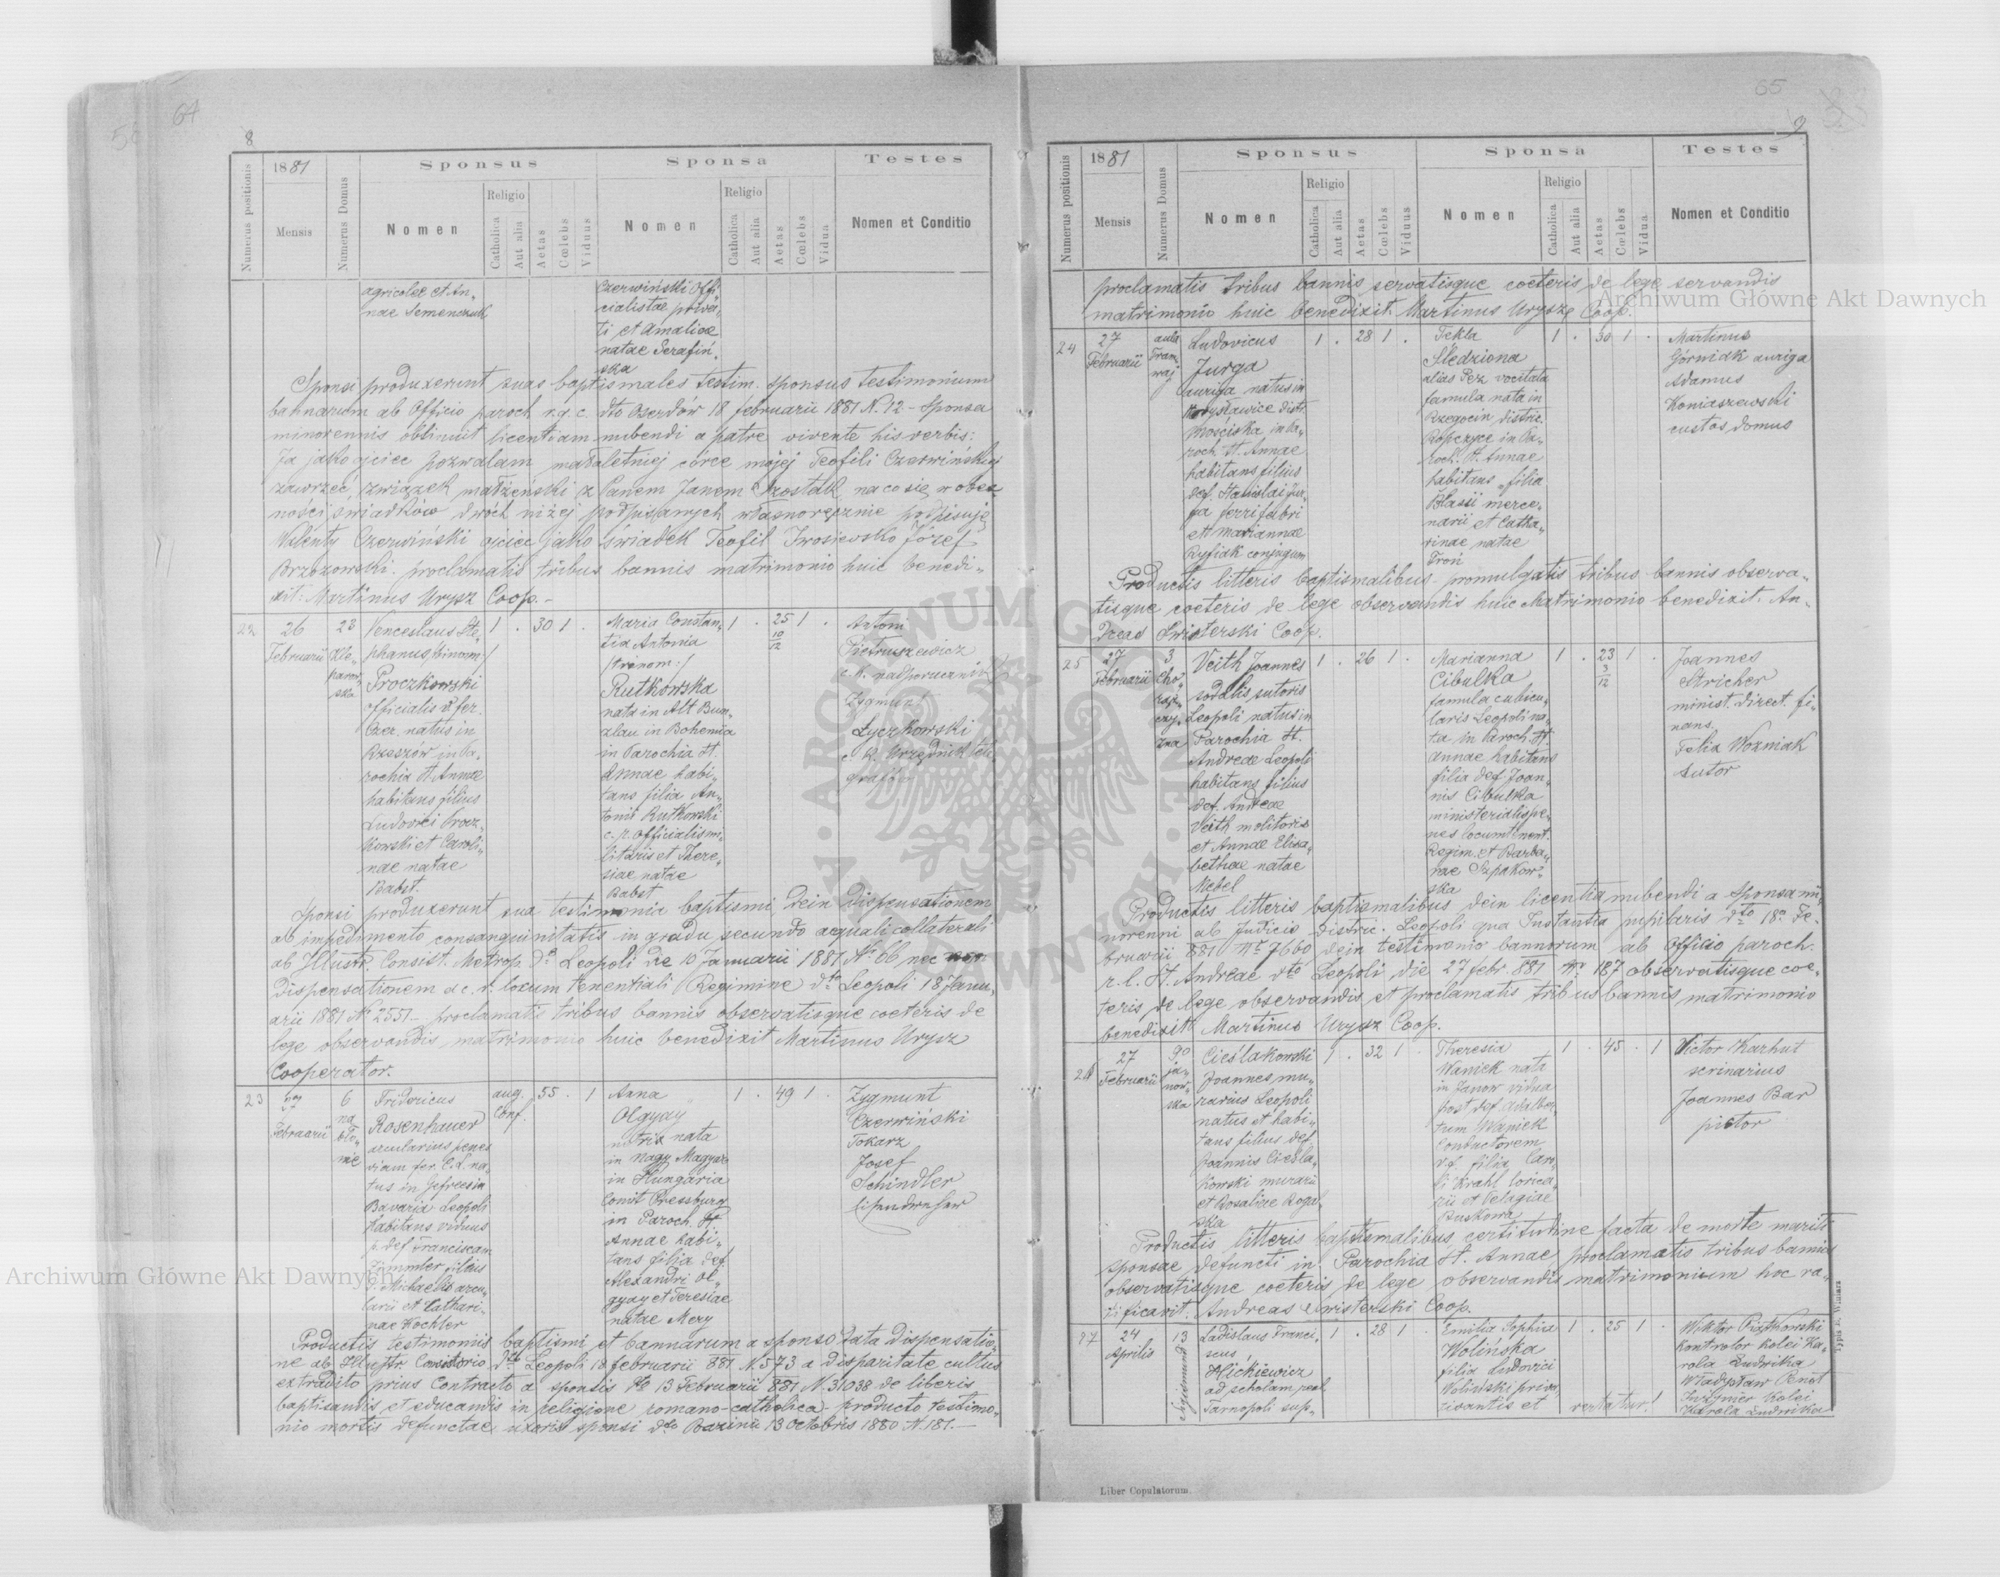 64
8
1881
Sponsus
Sponsa
Testes
Numerus positionis
Mensis
Numerus Domus
Nomen
Religio
Catholica
Aut alia
Aetas
Cœlebs
Viduus
Nomen
Religio
Catholica
Aut alia
Aetas
Cœlebs
Vidua
Nomen et Conditio
agricolae et An-
nae Semenczuk
Czerwiński Offi-
cialistae priva-
ti et Amaliae
natae Serafiń-
ska
Sponsi produxerunt suas baptismales testim. sponsus testimonium
bannorum ab Officio paroch. r.g.c. dto Oserdów 18 februarii 1881 N. 12 – Sponsa
minorennis obtinuit licentiam nubendi a patre vivente his verbis:
Ja jako ojciec pozwalam małoletniej córce mojej Teofili Czerwińskiej
zawrzeć związek małżeński z Panem Janem na co się w obec-
ności świadków dwóch niżej podpisanych własnoręcznie podpisuję
Walenty Czerwiński ojciec jako świadek Teofil Józef
Brzozowski. proclamatis tribus bannis matrimonio huic benedi-
xit: Martinus Urysz Coop. –
22
26
Februarii
23
Kle-
parow-
ska
Venceslaus Ste-
phanus /binom:/
Proczkowski
officialis viae fer.
Czer. natus in
Rzeszów in Pa-
rochia St. Annae
habitans filius
Ludovici Procz-
kowski et Caroli-
nae natae
Babst.
1 . 30 1 .
Maria Constan-
tia Antonia
/trinom:/
Rutkowska
nata in Alt Bun-
zlau in Bohemia
in Parochia St.
Annae habi-
tans filia An-
tonii Rutkowski
c. r. officialis mi-
litaris et There-
siae natae
Babst
1 . 25 1 .
10
12
Antoni
Pietruszewicz
c. k. nadporucznik
Zygmunt
Łyczkowski
c. k. urzędnik tele-
graf.
Sponsi produxerunt sua testimonia baptismi, dein dispensationem
ab impedimento consanguinitatis in gradu secundo aequali collaterali
ab Illustr. Consist. Metrop. dto Leopoli die 10 Januarii 1881 N. 66 nec non
dispensationem a c. r. locum tenentiali Regimine dto Leopoli 18 Janu-
arii 1881 N. 2551 – proclamatis tribus bannis observatisque coeteris de
lege observandis matrimonio huic benedixit Martinus Urysz
Cooperator.
23
27
Februarii
6
na
bło-
nie
Fridericus
Rosenhauer
arcularius penes
viam fer. C. L. na-
tus in Gefreesin
Bavaria Leopoli
habitans viduus
p. def. Franciscam
Zimmler filius
Michaelis arcu-
larii et Cathari-
nae Köchler
aug.
Conf.
55 . 1
Anna
Olgyay
nutrix nata
in Nagy Magyar
in Hungaria
Comit Pressburg
in Paroch. St.
Annae habi-
tans filia def.
Alexandri Ol-
gyay et Teresiae
natae Mezy
1 . 49 1 .
Zygmunt
Czerwiński
Tokarz
Josef
Schindler
Eisendreher
Productis testimoniis baptismi et bannorum a sponso data dispensatio-
ne ab Illustr. Consistorio dto Leopoli 18 februarii 881 N. 573 a disparitate cultus
extradito prius Contracto a sponsis de 13 Februarii 881 N. 31038 de liberis
baptisandis et educandis in religione romano-catholica producto testimo-
nio mortis defunctae uxoris sponsi dto 13 Octobris 1880 N. 181. –
65
9
1881
Sponsus
Sponsa
Testes
Numerus positionis
Mensis
Numerus Domus
Nomen
Religio
Catholica
Aut alia
Aetas
Cœlebs
Viduus
Nomen
Religio
Catholica
Aut alia
Aetas
Cœlebs
Vidua
Nomen et Conditio
proclamatis tribus bannis servatisque coeteris de lege servandis
matrimonio huic benedixit. Martinus Urysz Coop.
24
27
Februarii
aula
Tram-
waj
Ludovicus
Jurga
auriga natus in
Korysławice distr.
Mościska in Pa-
roch. St. Annae
habitans filius
def. Stanislai Jur-
ga ferrifabri
et Mariannae
Rysiak conjugum
1 . 28 1 .
Tekla
Śledziona
alias Pez vocitata
famula nata in
Rzegocin distric.
Ropczyce in Pa-
roch. St. Annae
habitans filia
Blasii merce-
narii et Catha-
rinae natae
Troń
1 . 30 1 .
Martinus
Górniak auriga
Adamus
Koniaszewski
custos domus
Productis litteris baptismalibus promulgatis tribus bannis observa-
tisque coeteris de lege observandis huic Matrimonio benedixit. An-
dreas Świsterski Coop.
25
27
Februarii
3
Cho-
rąż-
czyz-
zna
Veith Joannes
sodalis sutoris
Leopoli natus in
Parochia St.
Andreae Leopoli
habitans filius
def. Andreae
Veith molitoris
et Annae Elisa-
bethae natae
Nebel
1 . 26 1 .
Marianna
Cibulka
famula cubicu-
laris Leopoli na-
ta in Paroch. St.
Annae habitans
filia def. Joan-
nis Cibulka
ministerialis pe-
nes locumtenent.
Regim. et Barba-
rae Szpakow-
ska
1 . 23 1 .
3
12
Joannes
Stricker
minist. direct. fi-
nans.
Felix Woźniak
sutor
Productis litteris baptismalibus dein licentia nubendi a sponsa mi-
norenni ab Judicio distric. Leopoli qua Instantia pupilaris dto 18a Fe-
bruarii 881 Nr 7660 dein testimonio bannorum ab Officio paroch.
r. l. St. Andreae dto Leopoli die 27 febr. 881 Nr 187 observatisque coe-
teris de lege observandis et proclamatis tribus bannis matrimonio
benedixit Martinus Urysz Coop.
26
27
Februarii
90
ja-
now-
ska
Cieślakowski
Joannes mu-
rarius Leopoli
natus et habi-
tans filius def.
Joannis Cieśla-
kowski murarii
et Rosaliae Rogal-
ska
1 . 32 1 .
Theresia
Waniek nata
in Janow vidua
post def. Adalber-
tum Waniek
conductorem
v.f. filia Caro-
li Krahl lorica-
rii et Pelagiae
Buskowa
1 . 45 . 1
Victor Karhut
scrinarius
Joannes Bar
pictor
Productis litteris baptismalibus certitudine facta de morte mariti
sponsae defuncti in Parochia St. Annae, proclamatis tribus bannis
observatisque coeteris de lege observandis matrimonium hoc ra-
tificavit. Andreas Świsterski Coop.
27
24
Aprilis
13
Sigismund
Ladislaus Franci-
scus
Hickiewicz
ad scholam real.
Tarnopoli sup-
1 . 28 1 .
Emilia Sophia
Wolińska
filia Ludovici
Woliński priva-
tisantis et
1 . 25 1 .
vertatur!
Wiktor Piątkowski
Kontrolor kolei Ka-
rola Ludwika
Władysław Benet
Inżynier kolei
Karola Ludwika
Typis E. Winiarz
Liber Copulatorum.
Archiwum Główne Akt Dawnych
Archiwum Główne Akt Dawnych
ARCHIWUM GŁÓWNE AKT DAWNYCH